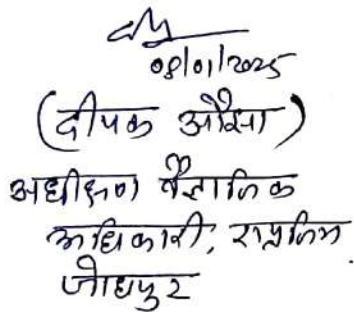 08/01/2025
(दीपक औसा)
अधीक्षण वैज्ञानिक
अधिकारी,
जोधपुर